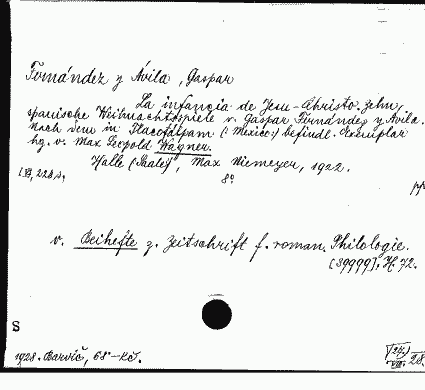 Fernández y Ávila, Gaspar
La infancia de Jesu-Christo. Zehn
spanische Weihnachtsspiele v. Gaspar Fernández y Avila.
Nach dem in Tlacotálpam (: Mexico:) befindl. Exemplar
hg. v. Max Leopold Wagner.
Halle (Saale), Max Niemeyer, 1922.
8º
v. Beihefte z. Zeitschrift f. roman. Philologie.
[39999], H. 72.
S
1928. Barvič, 68·– Kč.
28.